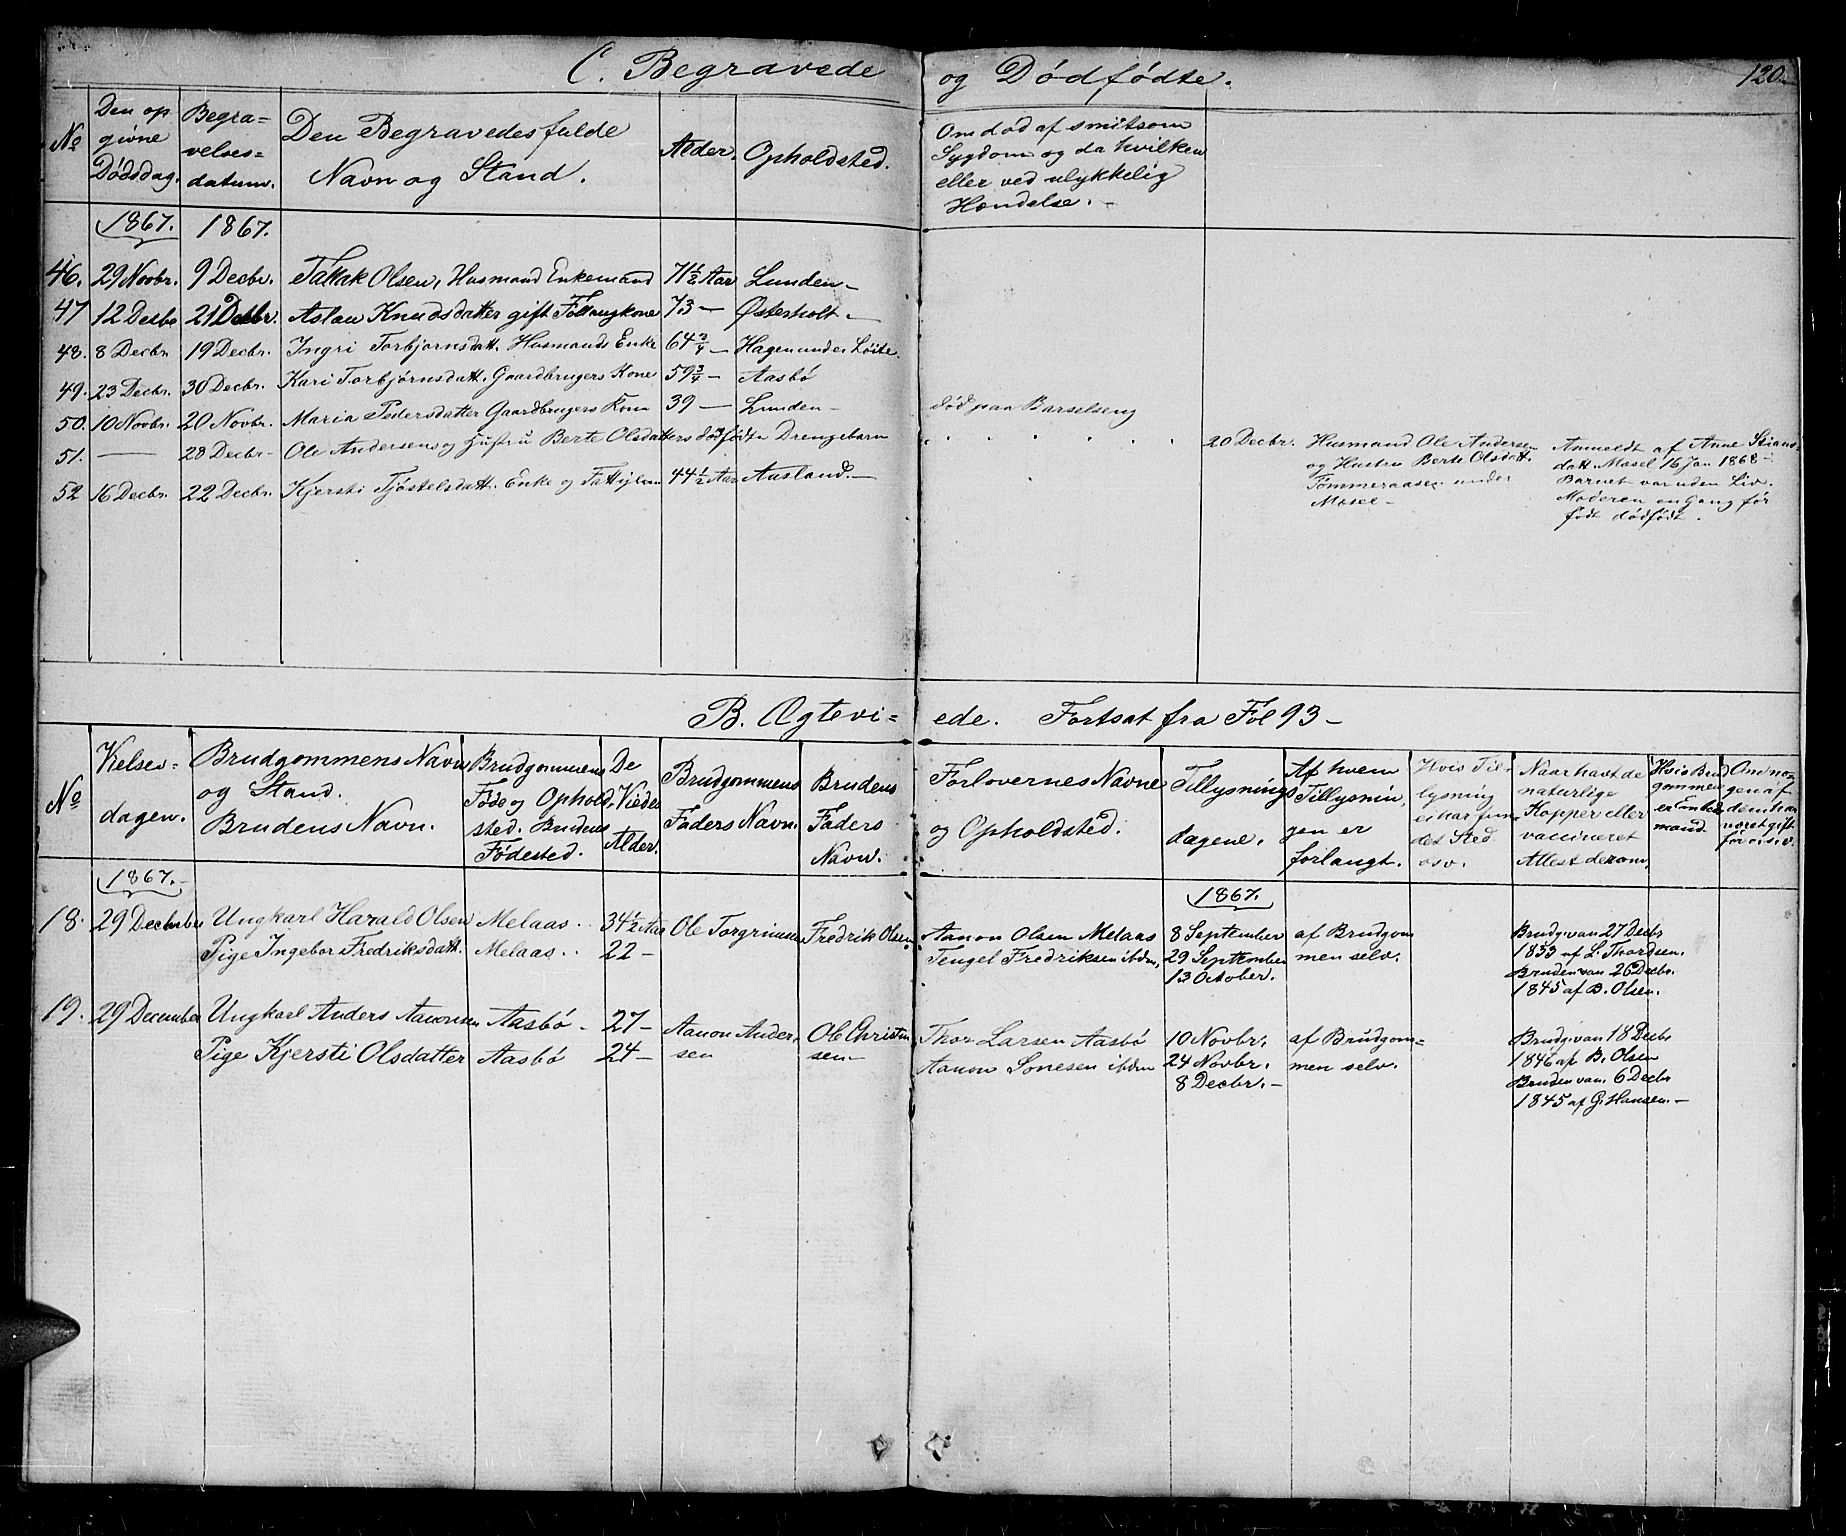 C. Begravede og Dødfødte. 120.
No | Den opgivne Dødsdag. | Begravelses=datum. | Den Begravedes fulde Navn og Stand. | Alder. | Opholdsted. | Om død af smitsom Sygdom og da hvilken eller ved ulykkelig Hændelse. -
1867. 1867.
46. 29 Novbr. 9 Decbr. Tallak Olsen, Husmand Enkemand 71½ Aar Lunden -
47 12 Decbr 21 Decbr. Aslau Knudsdatter gift 73 - Østerholt -
48. 8 Decbr. 19 Decbr. Ingri Torbjørnsdatt. Husmands Enke 64¾ - Hagen under Løite.
49. 23 Decbr. 30 Decbr. Kari Torbjørnsdatt. Gaardbrugers Kone 59¾ - Aasbø
50. 10 Novbr. 20 Novbr. Maria Pedersdatter Gaardbrugers Kone 39 - Lunden - død paa Barselseng
51. - 28 Decbr - Ole Andersens og Hustru Berte Olsdatters dødfødte Drengebarn 20 Decbr.
Husmand Ole Andersen
og Hustru Berte Olsdatt.
Tømmeraasen under
Mosel -
Anmeldt af Anne Stians-
datt. Mosel 16 Jan 1868 -
Barnet var uden Liv.
Moderen en Gang før
født dødfødt.
52 16 Decbr. 22 Decbr. Kjersti Tjøstelsdatt. Enke og 44½ Aar Aasland. -
B. Ægtevi=ede. Fortsat fra Fol 93 -
No | Vielses=dagen. | Brudgommens Navn og Stand. Brudens Navn. | Brudgommens Føde og Opholdsted. Brudens Fødested. | De Viedes Alder. | Brudgommens Faders Navn. | Brudens Faders Navn. | Forlovernes Navne og Opholdsted. | Tillysnings dagene. | Af hvem Tillysningen er forlangt. | Hvis Tillysning ei har fundet Sted osv. | Naar havt de naturlige Kopper eller vaccineret Attest derom. | Hvis Brudgommen er Enkemand. | Om nogen af dem har været gift før o.s.v.
1867. - 1867.
18. 29 December Ungkarl Harald Olsen Melaas .. 34½ Aar Ole Torgrimsen Fredrik Olsen. Aanon Olsen Melaas 8 September af Brudgom Brudg. van 27 Decbr
Pige Ingebor Fredriksdatt. Melaas .. 22 - Tengel Fredriksen ibdm, 29 September men selv. 1833 af L. Thordsen.
13 October. Bruden van 26 Decbr.
1845 af B. Olsen.
19. 29 December Ungkarl Anders Aanonsen Aasbø - 27 - Aanon Ander- Ole Christen Thor Larsen Aasbø 10 Novbr. af Brudgom= Brudg. van 18 Decbr
Pige Kjersti Olsdatter Aasbø 24 - sen sen - Aanon Sonesen ibdm 24 Novbr. men selv. 1846 af B. Olsen
8 Decbr. - Bruden van. 6 Decbr
1845 af G. Hansen. -